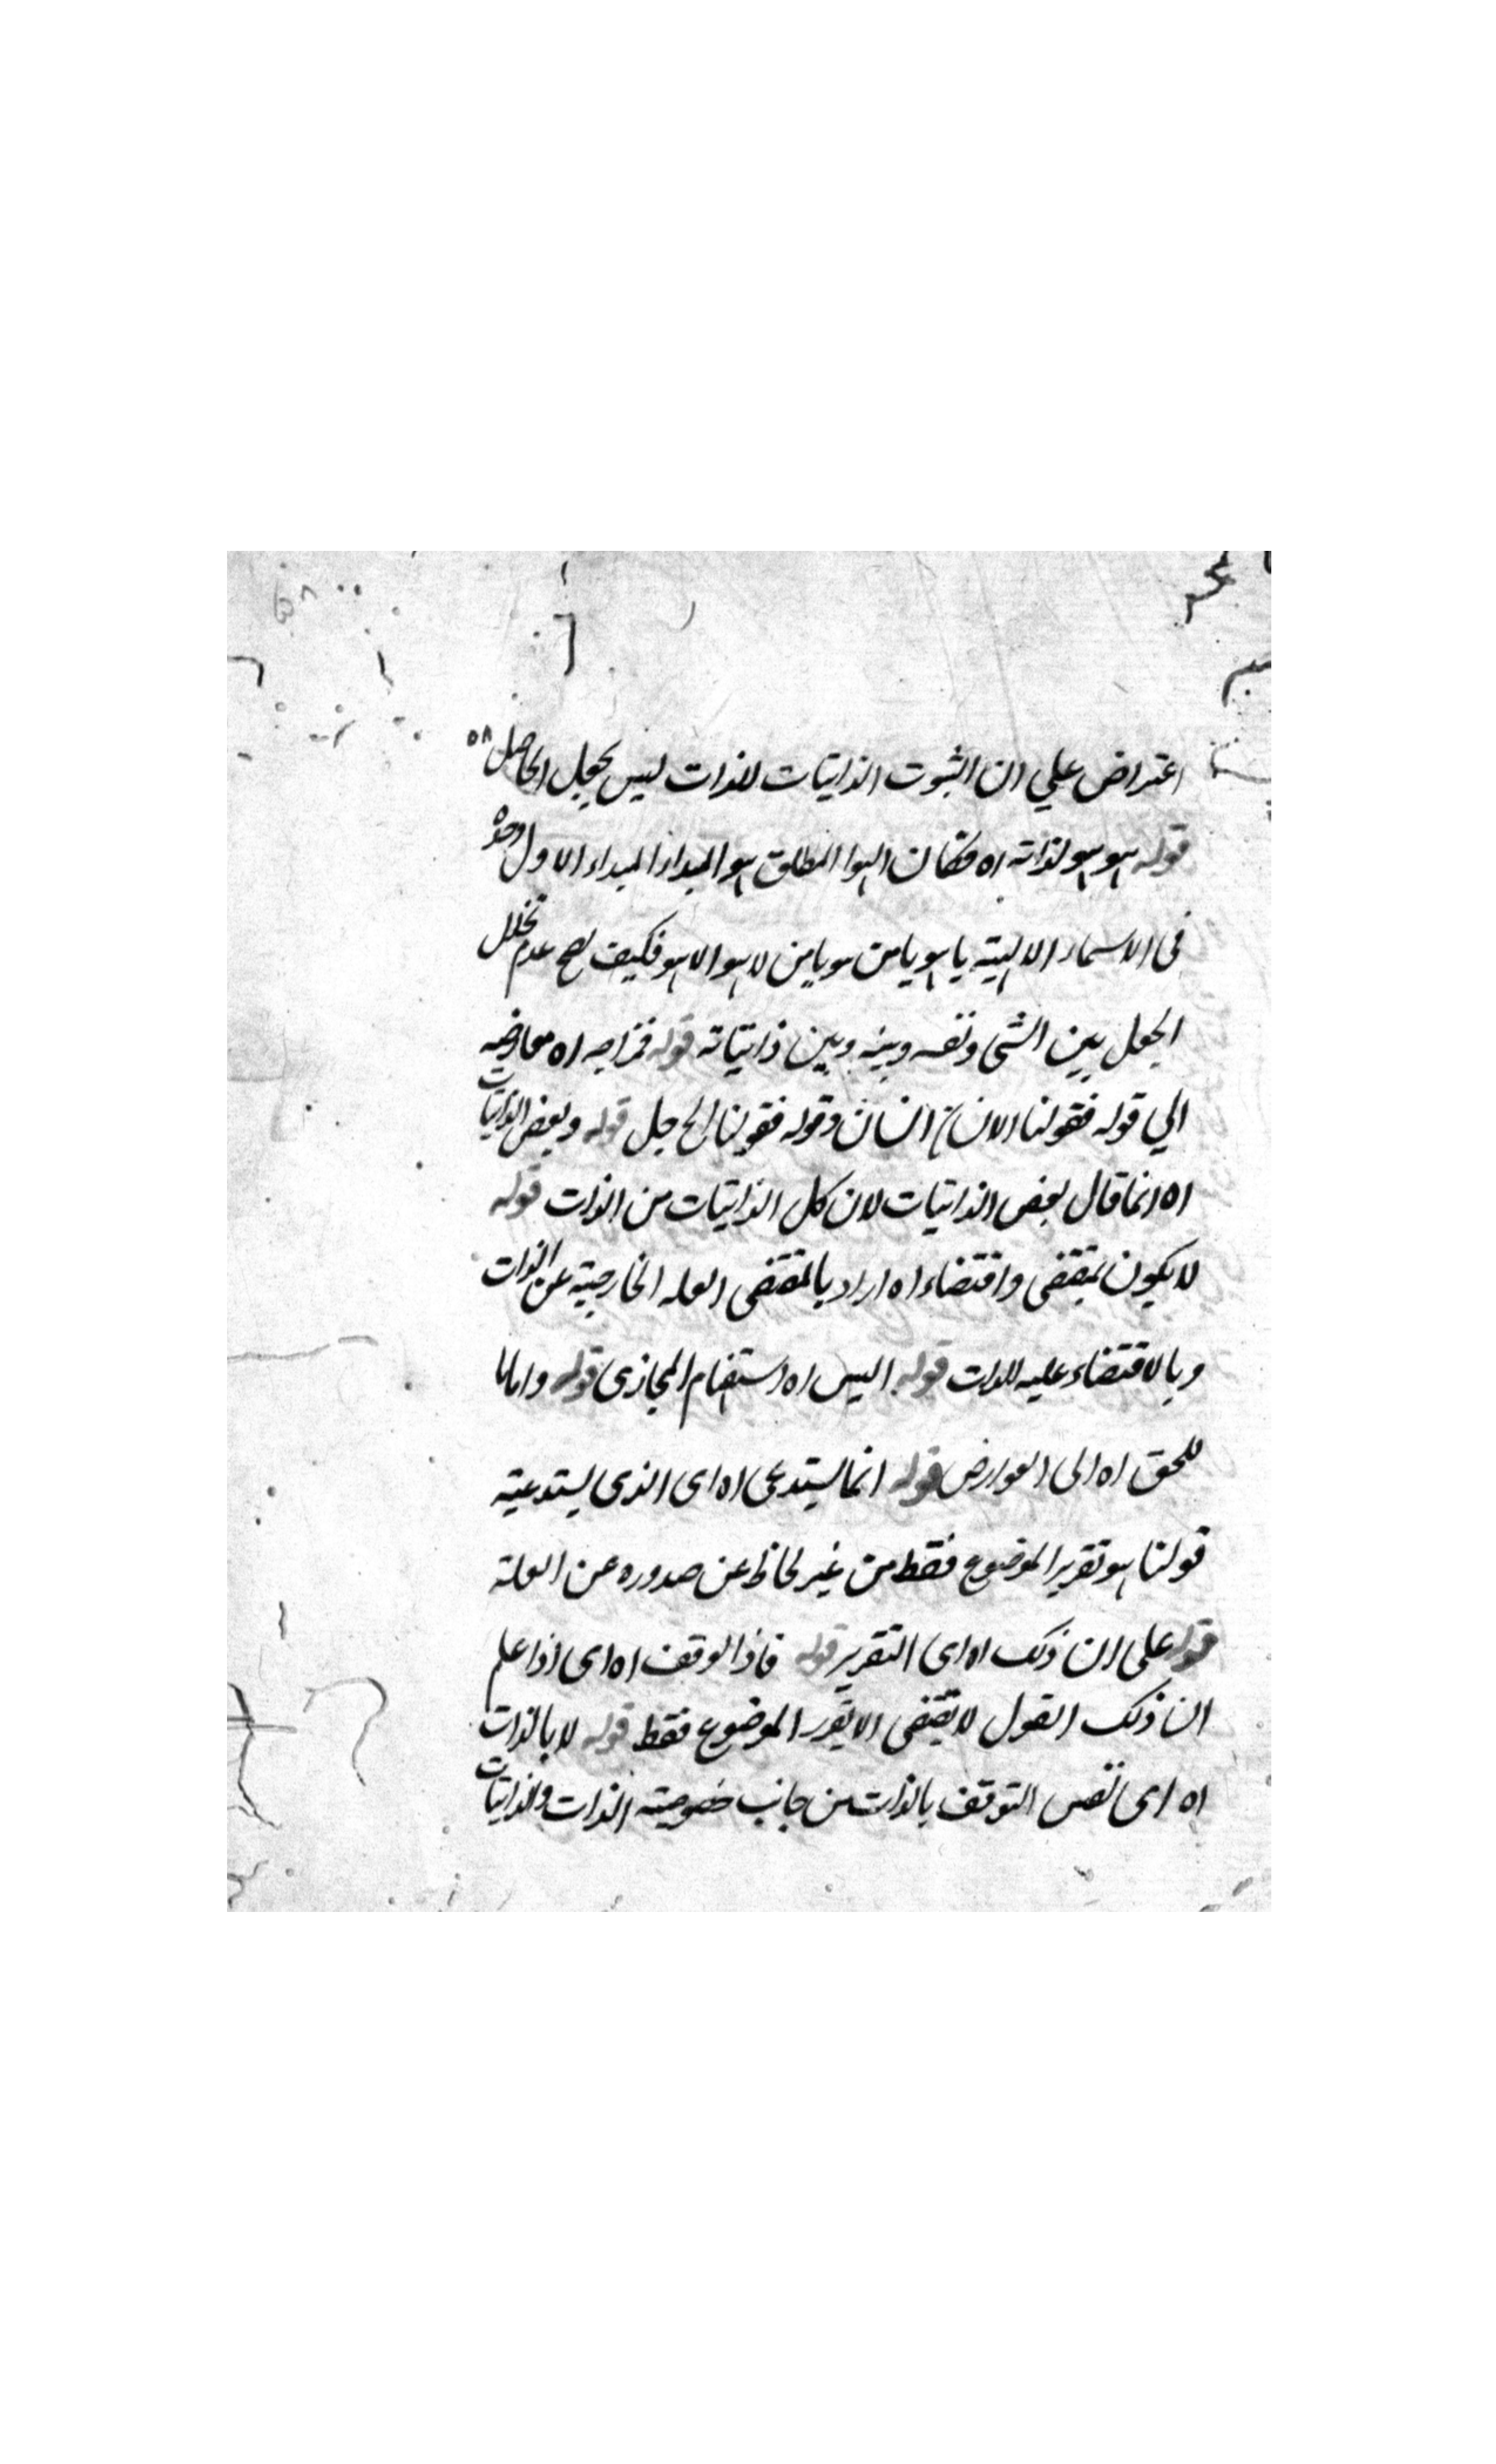 اعتراض علي ان الثبوت الذاتيات للذات ليس بجعل الحاصل ٥٨
قوله هو هو لذاته اه فكان الهو المطلق هو المبداء المبداء الاول وحده
فى الاسماء الالهية يا هو يا من هو يا من لا هو الا هو فكيف يصح عدم تخلل
الجعل بين الشئ ونفسه وبينه وبين ذاتياته قوله اه معارضه
الي قوله فقولنا الانسان انسان وقوله فقولنا قوله وبعض الذاتيات
اه انما قال بعض الذاتيات لان كل الذاتيات من الذات قوله
لا يكون بمقتضى واقتضاء اه اراد بالمقتضى العلة الخارجية عن الذات
وبالاقتضاء علية الذات قوله اليس اه استفهام المجازى قوله واما ما
للحق اه الى العوارض قوله انما يستدعى اه اى الذى يستدعيه
قولنا هو تقرير الموضوع فقط من غير لحاظ عن صدوره عن العلة
قوله على ان ذلك اه اى التقرير قوله فاذا الوقف اه اى اذا علم
ان ذلك القول لا يقتضى الا تقرر الموضوع فقط قوله لا بالذات
اه اى نفس التوقف بالذات من جانب خصوصية الذات والذاتيات